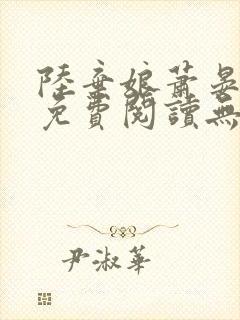 陸棄娘蕭晏
免費閱讀無
尹淑華